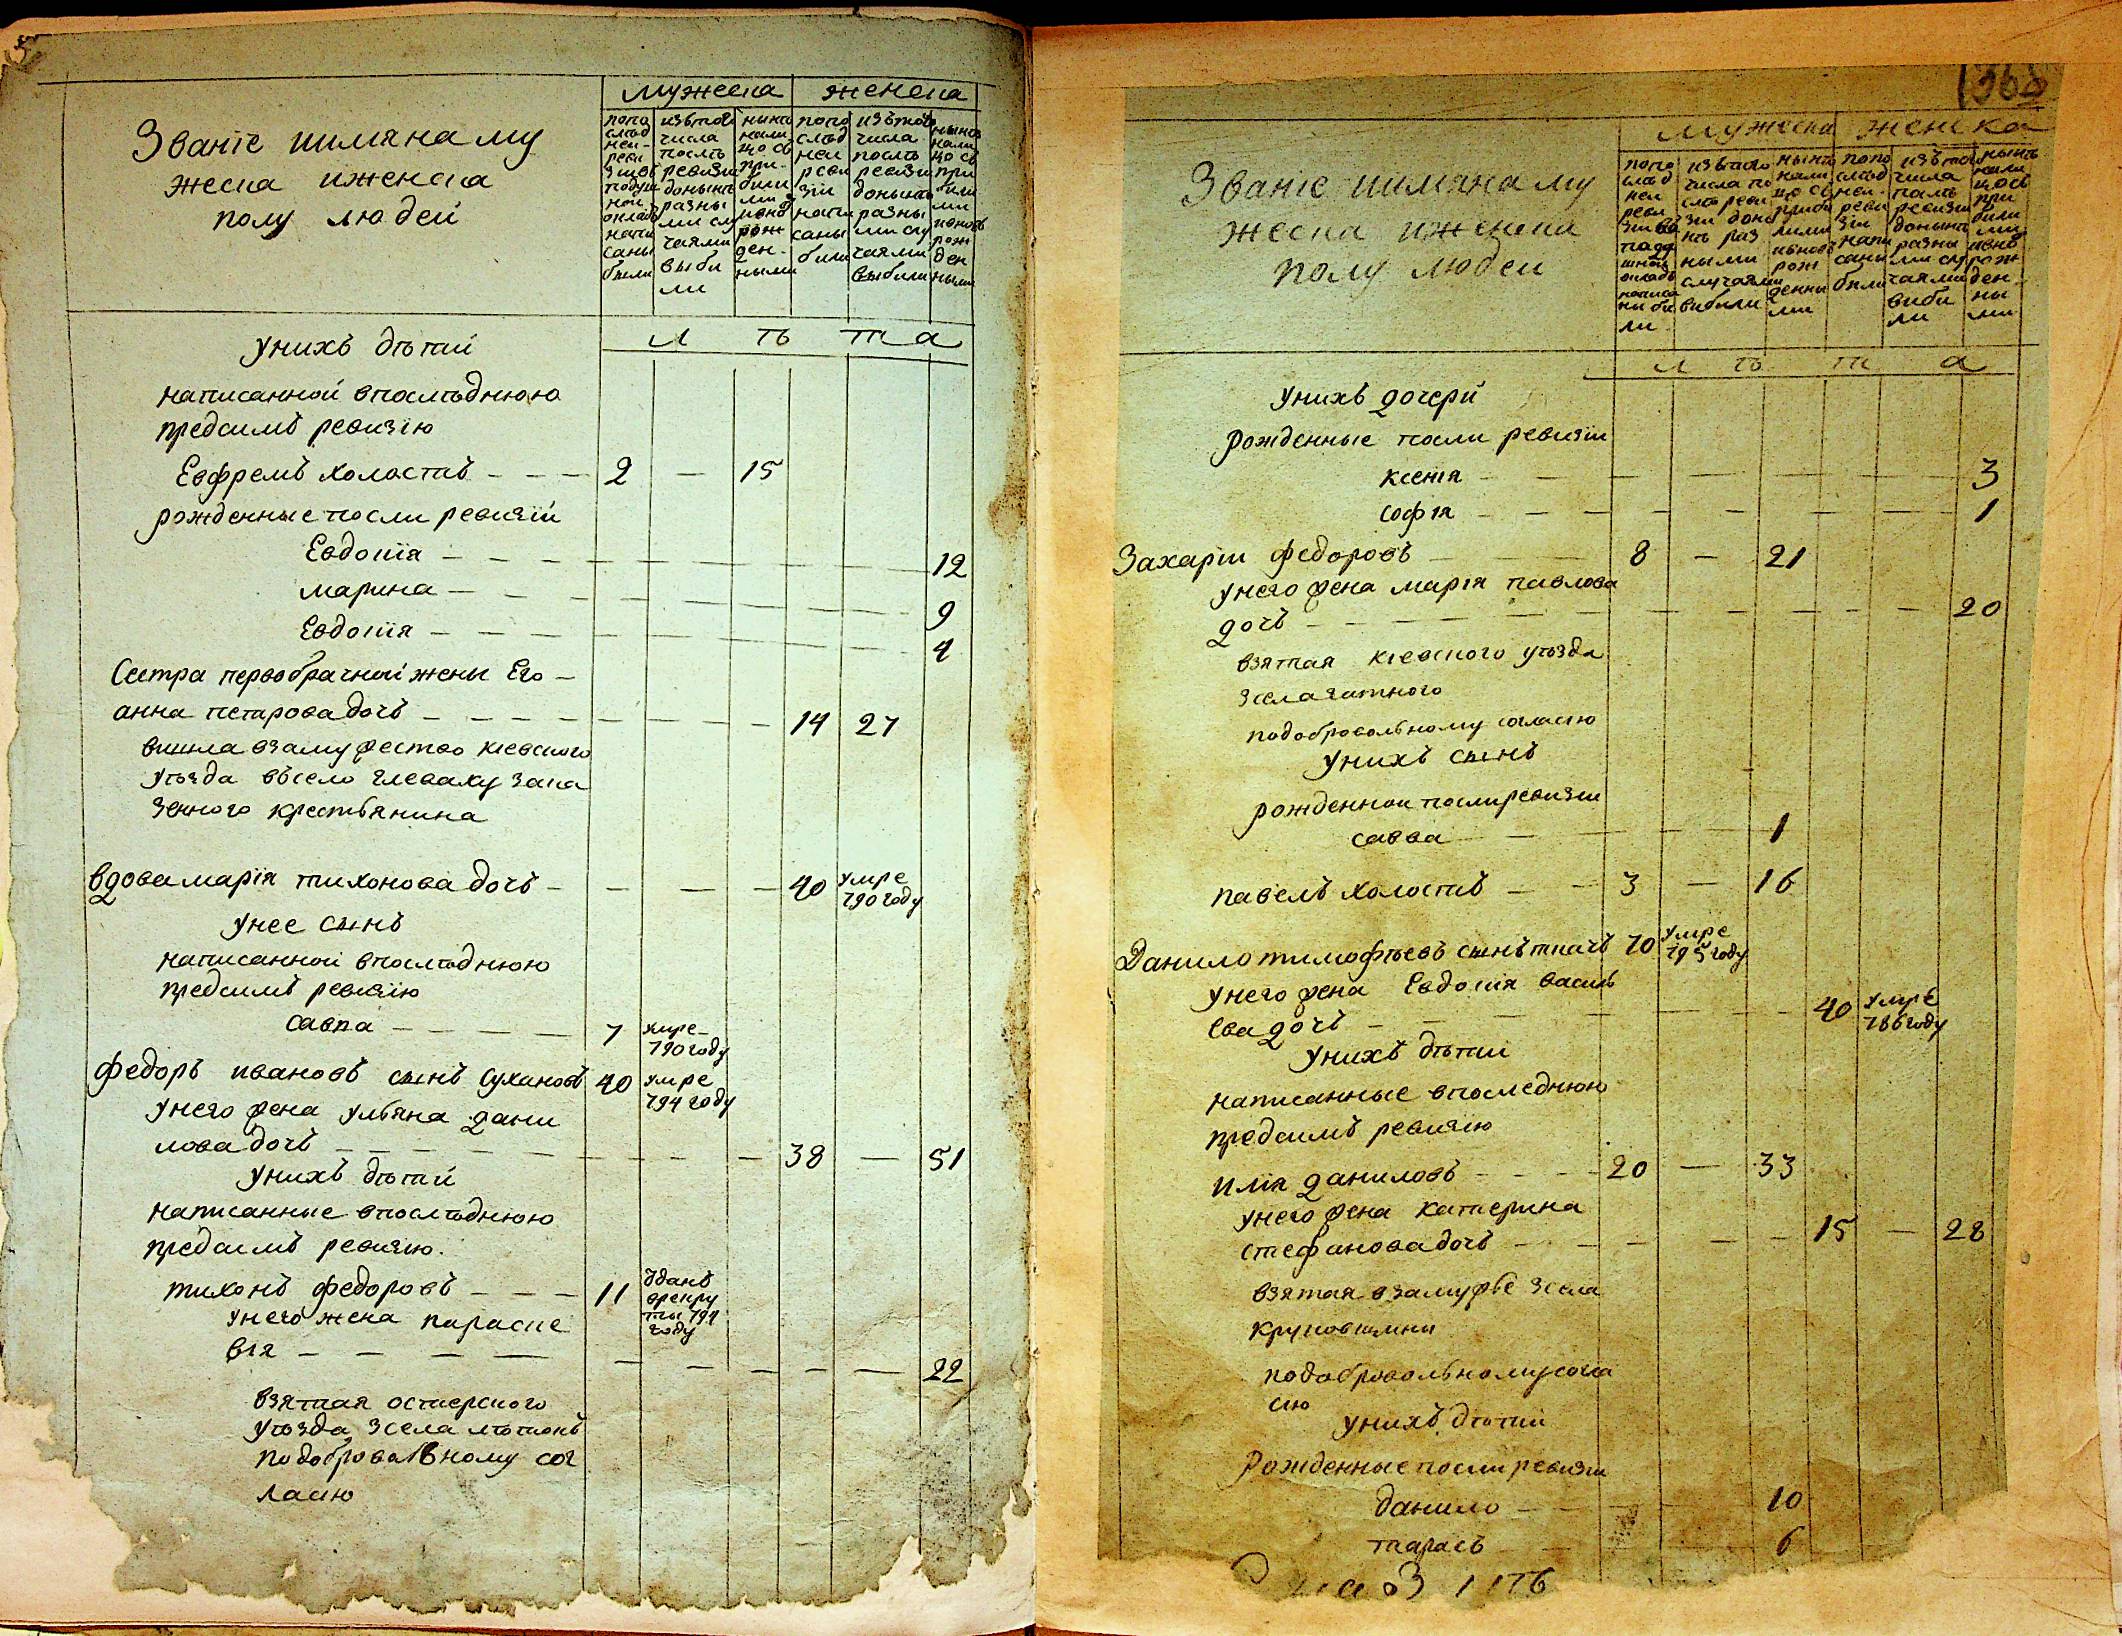 Званіе иимянаму
жеска иженска
полу людей
мужеска
женска
попо
слѣд
ней
реви
зіи вѣ
подуш
ной
окладѣ
напи
саны
были
изѣтого
числа
послѣ
ревизіи
донынѣ
разны
ми слу
чаями
выбы
ли
нынѣ
нали
цо сѣ
при-
были
ми й
вновѣ
рож
ден-
ными
попо
слѣд
ней
реви
зіи
напи
саны
были
изѣтого
числа
послѣ
ревизіи
донынѣ
разны
ми слу
чаями
выбыли
нынѣ
нали
цо сѣ
при
были
ми
ивновѣ
рож
ден
ными
л ѣ т а
унихъ дѣтей
написанной впослѣднюю
предсимъ ревизію
Евфремъ холостъ - - - 2 — 15
рожденные посли ревизіи
Евдокія - - - 12
марина - - - 9
Евдокія - - - 4
Сестра первобрачной жены Его -
анна петрова дочъ - - - 14 27
вишла взамужество кіевского
уѣзда всело глеваху зака
зенного крестьянина
вдова марія тихонова дочъ - - - 40 умре
790 году
унее сынъ
написанной впослѣднюю
предсимъ ревизію
савка - - - 7 умре
790 году
федоръ ивановъ сынъ Сухановъ 40 умре
794 году
унего жена ульяна дани
лова дочъ - - - 38 — 51
унихъ дѣтей
написанные впослѣднюю
предсимъ ревизію.
тихонъ федоровъ - - - 11 ѣданъ
врекру
ты 794
году
унего жена параске
вія - - - 22
взятая остерского
уѣзда зсела лѣтокъ
подобровольному сог
ласію
1368
Званіе иимянаму
жеска иженска
полу людей
мужеска
женска
попо
слѣд
ней
реви
зіи вѣ
поду
шной
окладѣ
написа
ни бы
ли
изѣтого
числа по
слѣ реви
зіи дони
нѣ раз
ными
случаями
вибыли
нынѣ
нали
цо сѣ
приби
лими
ивновѣ
рож
денни
ми
попо
слѣд
ней
реви
зіи
напи
сани
били
изѣтого
числа
послѣ
ревизіи
донынѣ
разны
ми слу
чаями
виби
ли
нынѣ
нали
цо сѣ
при
били
ми
ивнѣ
рож
ден-
ны
ми
л ѣ т а
унихъ дочери
рожденные посли ревизіи
ксенія - - - 3
софія - - - 1
Захарій федоровъ - - - 8 — 21
унего жена марія павлова
дочъ - - - 20
взятая кіевского уѣзда
зсела гатного
подобровольному согласію
унихъ сынъ
рожденной послиревизіи
савва - - - 1
павелъ холостъ - - 3 — 16
Данило тимофѣевъ сынъ ткачъ 70 умре
795 году
унего жена Евдокія василь
Ева дочъ - - - 40 умре
786 году
унихъ дѣтей
написанные впоследнюю
предсимъ ревизію
илія даниловъ - - - 20 — 33
унего жена катерина
стефанова дочъ - - - 15 — 28
взятая взамужье зсела
круковщини
подобровольному согла
сію
унихъ дѣтей
Рожденные посли ревизіи
данило - - 10
тарасъ - - 6